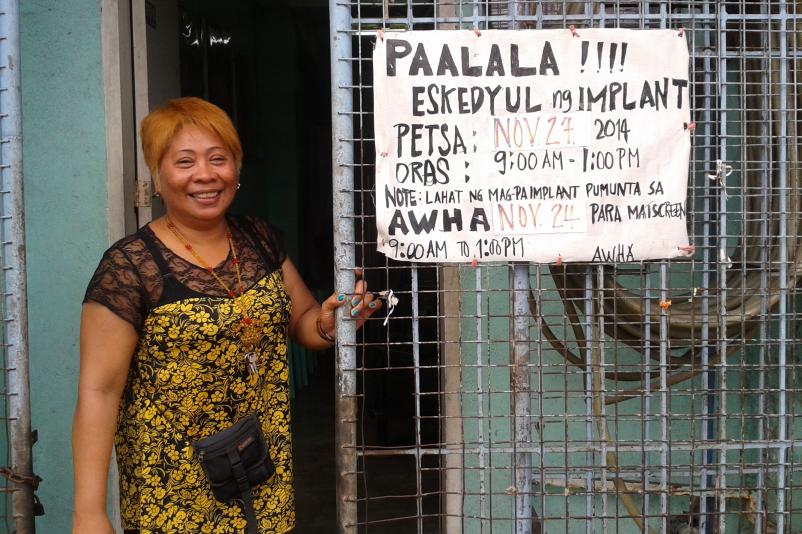 PAALALA !!!!
ESKEDYUL ng IMPLANT
PETSA: NOV 27 2014
ORAS: 9:00 AM - 1:00 PM
NOTE: LAHAT NG MAG-PA IMPLANT PUMUNTA SA
AWHA NOV. 24 PARA MAISCREEN
9:00 AM TO 1:00 PM AWHA